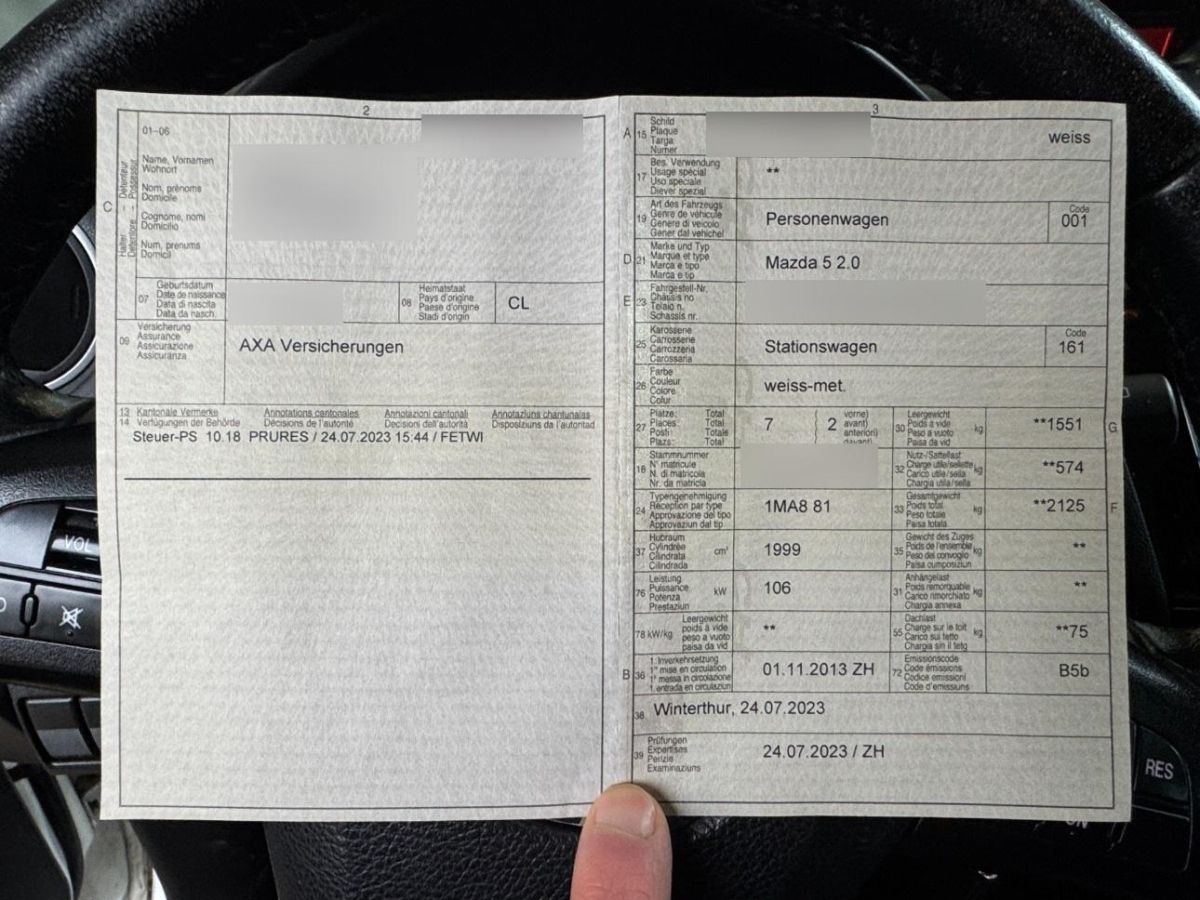 2
01-06
C
Halter - Détenteur
Detentore - Possessur
Name, Vornamen
Wohnort
Nom, prénoms
Domicile
Cognome, nomi
Domicilio
Num, prenums
Domicil
07
Geburtsdatum
Date de naissance
Data di nascita
Data da nasch.
08
Heimatstaat
Pays d'origine
Paese d'origine
Stadi d'origin
CL
09
Versicherung
Assurance
Assicurazione
Assicuranza
AXA Versicherungen
13 Kantonale Vermerke Annotations cantonales Annotazioni cantonali Annotaziuns chantunalas
14 Verfügungen der Behörde Décisions de l'autorité Decisioni dell'autorità Disposiziuns da l'autoritad
Steuer-PS 10.18 PRURES / 24.07.2023 15:44 / FETWI
3
A 15
Schild
Plaque
Targa
Numer
weiss
17
Bes. Verwendung
Usage spécial
Uso speciale
Diever spezial
**
19
Art des Fahrzeugs
Genre de véhicule
Genere di veicolo
Gener dal vehichel
Personenwagen
Code
001
D 21
Marke und Typ
Marque et type
Marca e tipo
Marca e tip
Mazda 5 2.0
E 23
Fahrgestell-Nr.
Châssis no
Telaio n.
Schassis nr.
25
Karosserie
Carrosserie
Carrozzeria
Carossaria
Stationswagen
Code
161
26
Farbe
Couleur
Colore
Colur
weiss-met.
27
Plätze: Total
Places: Total
Posti: Totale
Plazs: Total
7 ( 2
vorne)
avant)
anteriori)
davant)
30
Leergewicht
Poids à vide
Peso a vuoto
Paisa da vid
kg
**1551
G
18
Stammnummer
N° matricule
N. di matricola
Nr. da matricla
32
Nutz-/Sattellast
Charge utile/sellette
Carico utile/sella
Chargia utila/sella
kg
**574
24
Typengenehmigung
Réception par type
Approvazione del tipo
Approvaziun dal tip
1MA8 81
33
Gesamtgewicht
Poids total
Peso totale
Paisa totala
kg
**2125
F
37
Hubraum
Cylindrée
Cilindrata
Cilindrada
cm³
1999
35
Gewicht des Zuges
Poids de l'ensemble
Peso del convoglio
Paisa cumposiziun
kg
**
76
Leistung
Puissance
Potenza
Prestaziun
kW
106
31
Anhängelast
Poids remorquable
Carico rimorchiato
Chargia annexa
kg
**
78 kW/kg
Leergewicht
poids à vide
peso a vuoto
paisa da vid
**
55
Dachlast
Charge sur le toit
Carico sul tetto
Chargia sin il tetg
kg
**75
B 36
1. Inverkehrsetzung
1re mise en circulation
1a messa in circolazione
1. entrada en circulaziun
01.11.2013 ZH
72
Emissionscode
Code émissions
Codice emissioni
Code d'emissiuns
B5b
38
Winterthur, 24.07.2023
39
Prüfungen
Expertises
Perizie
Examinaziuns
24.07.2023 / ZH
VOL
RES